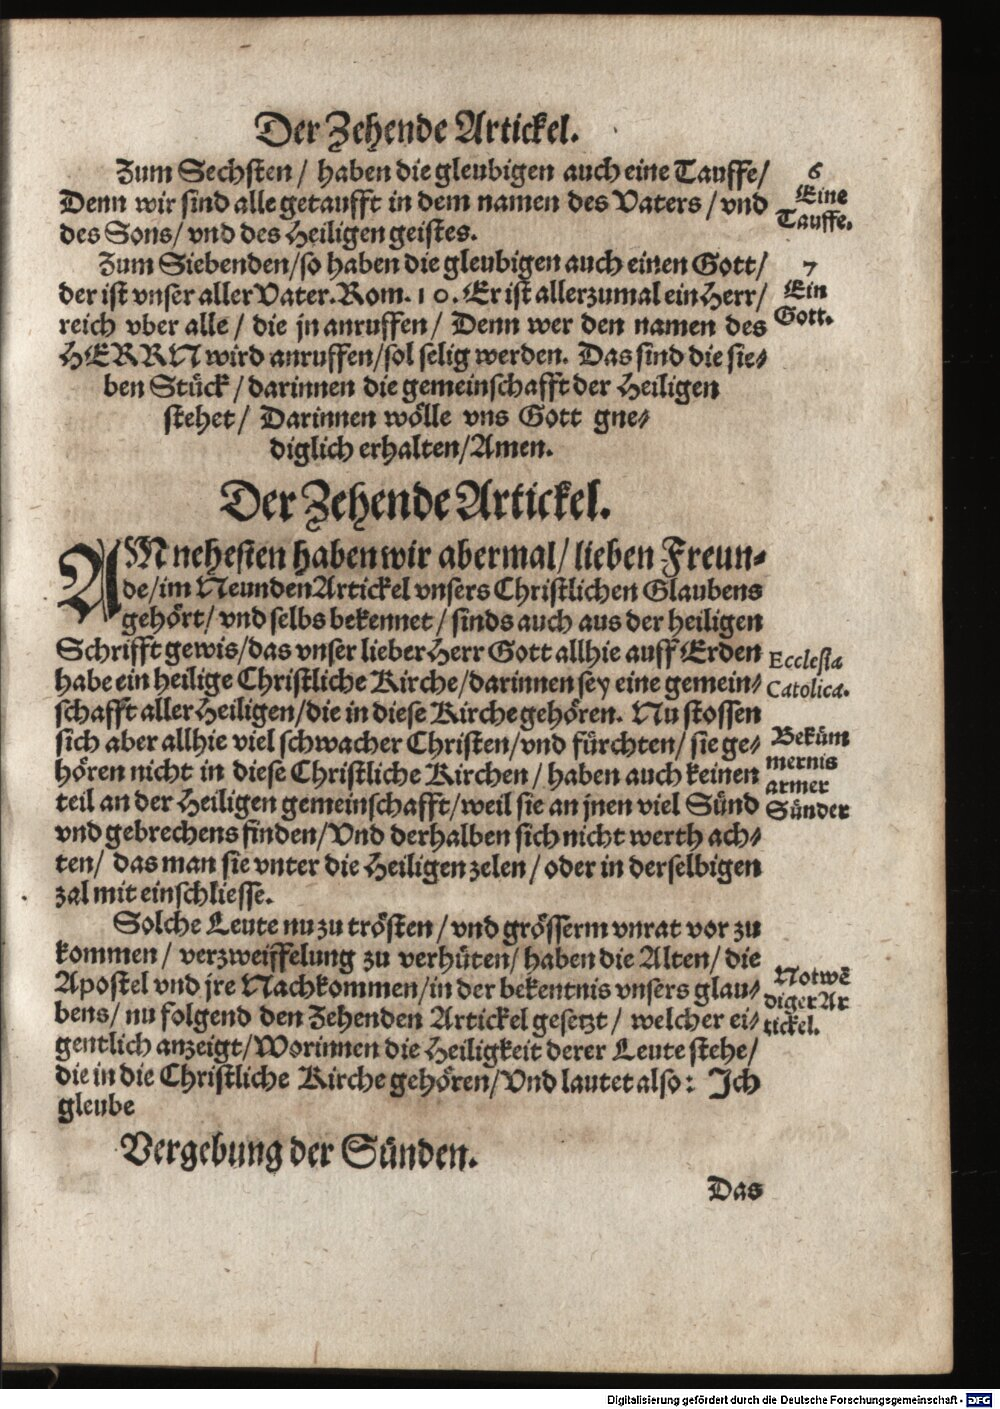 Der Zehende Artickel.
Zum Sechsten / haben die gleubigen auch eine Tauffe /
Denn wir sind alle getaufft in dem namen des Vaters / vnd
des Sons / vnd des Heiligen geistes.
6
Eine
Tauffe.
Zum Siebenden / so haben die gleubigen auch einen Gott /
der ist vnser aller Vater. Rom. 10. Er ist allerzumal ein Herr /
reich vber alle / die jn anruffen / Denn wer den namen des
HERRN wird anruffen / sol selig werden. Das sind die sie-
ben Stück / darinnen die gemeinschafft der Heiligen
stehet / Darinnen wölle vns Gott gne-
diglich erhalten / Amen.
7
Ein
Gott.
Der Zehende Artickel.
AM nehesten haben wir abermal / lieben Freun-
de / im Neunden Artickel vnsers Christlichen Glaubens
gehört / vnd selbs bekennet / sinds auch aus der heiligen
Schrifft gewis / das vnser lieber Herr Gott allhie auff Erden
habe ein heilige Christliche Kirche / darinnen sey eine gemein-
schafft aller Heiligen / die in diese Kirche gehören. Nu stossen
sich aber allhie viel schwacher Christen / vnd fürchten / sie ge-
hören nicht in diese Christliche Kirchen / haben auch keinen
teil an der Heiligen gemeinschafft / weil sie an jnen viel Sünd
vnd gebrechens finden / Vnd derhalben sich nicht werth ach-
ten / das man sie vnter die Heiligen zelen / oder in derselbigen
zal mit einschliesse.
Ecclesia
Catolica.
Bekům
mernis
armer
Sünder
Solche Leute nu zu trösten / vnd grösserm vnrat vor zu
kommen / verzweiffelung zu verhüten / haben die Alten / die
Apostel vnd jre Nachkommen / in der bekentnis vnsers glau-
bens / nu folgend den Zehenden Artickel gesetzt / welcher ei-
gentlich anzeigt / Worinnen die Heiligkeit derer Leute stehe /
die in die Christliche Kirche gehören / Vnd lautet also: Ich
gleube
Notwē
diger Ar
tickel.
Vergebung der Sünden.
Das
Digitalisierung gefördert durch die Deutsche Forschungsgemeinschaft - DFG